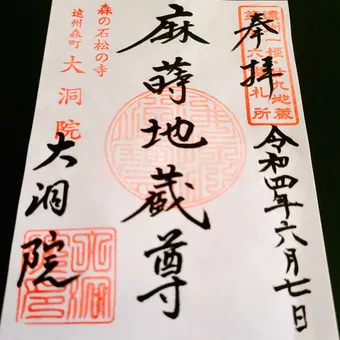 奉拝
令和四年六月七日
麻蒔地蔵尊
森の石松の寺
遠州森町 大洞院
大洞院